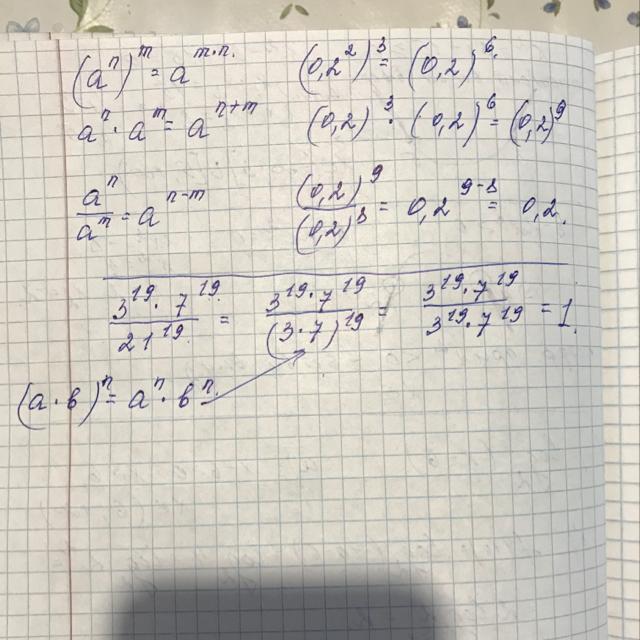 (aⁿ)ᵐ = aᵐ·ⁿ. (0,2²)³ = (0,2)⁶.
aⁿ · aᵐ = aⁿ⁺ᵐ (0,2)³ · (0,2)⁶ = (0,2)⁹
aⁿ/aᵐ = aⁿ⁻ᵐ (0,2)⁹/(0,2)⁸ = 0,2⁹⁻⁸ = 0,2.
3¹⁹·7¹⁹/21¹⁹ = 3¹⁹·7¹⁹/(3·7)¹⁹ = 3¹⁹·7¹⁹/3¹⁹·7¹⁹ = 1.
(a·b)ⁿ = aⁿ · bⁿ.